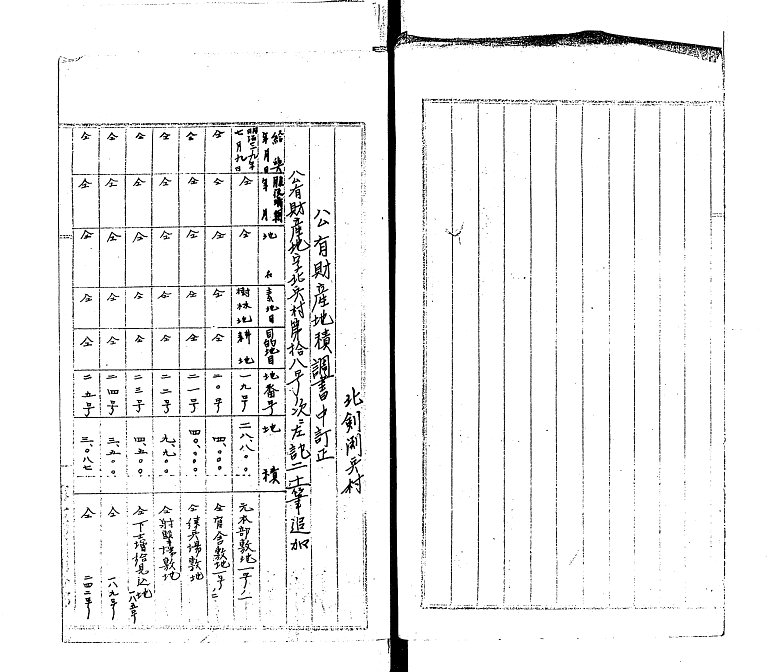 北剣淵兵村
公有財産地積調書中訂正
公有財産地字北兵村第拾八号ノ次ニ左記二十筆追加
給与年月日 服役満期年月 地名 素地目 目的地目 地番号 地積
明治三十九年七月九日 仝 仝 樹林地 耕地 一九号 二八、八〇〇 元本部敷地一号ノ一
仝 仝 仝 仝 仝 二〇号 四〇、〇〇〇 仝官舎敷地一号ノ二
仝 仝 仝 仝 仝 二一号 四〇、〇〇〇 仝練兵場敷地
仝 仝 仝 仝 仝 二二号 九、九〇〇 仝射撃場敷地
仝 仝 仝 仝 仝 二三号 四、五〇〇 仝下士増給見込地 一八五号
仝 仝 仝 仝 仝 二四号 三、五〇〇 仝 一八九号
仝 仝 仝 仝 仝 二五号 三、〇八七 仝 二四二号